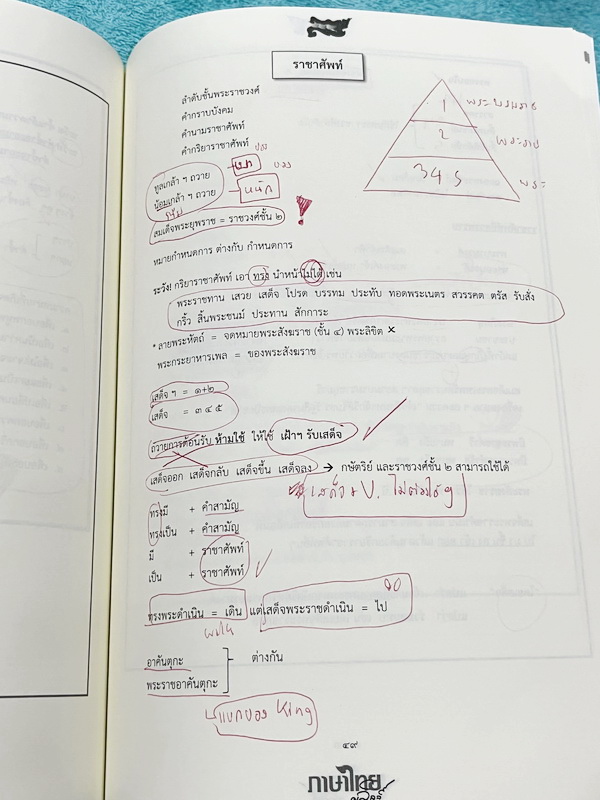 ราชาศัพท์
ลำดับชั้นพระราชวงศ์
คำกราบบังคม
คำนามราชาศัพท์
คำกริยาราชาศัพท์
ทูลเกล้า ฯ ถวาย เบา
น้อมเกล้า ฯ ถวาย หนัก
สมเด็จพระยุพราช = ราชวงศ์ชั้น ๒
1 พระบรมราช
2 พระราช
3 4 5 พระ
หมายกำหนดการ ต่างกับ กำหนดการ
ระวัง! กริยาราชาศัพท์ เอา ทรง นำหน้าไม่ได้ เช่น
พระราชทาน เสวย เสด็จ โปรด บรรทม ประทับ ทอดพระเนตร สวรรคต ตรัส รับสั่ง
กริ้ว สิ้นพระชนม์ ประทาน สักการะ
* ลายพระหัตถ์ = จดหมายพระสังฆราช (ชั้น ๔) พระลิขิต ×
พระกระยาหารเพล = ของพระสังฆราช
เสด็จ ฯ = ๑+๒
เสด็จ = ๓ ๔ ๕
ถวายการต้อนรับ ห้ามใช้ ให้ใช้ เฝ้าฯ รับเสด็จ
เสด็จออก เสด็จกลับ เสด็จขึ้น เสด็จลง → กษัตริย์ และราชวงศ์ชั้น ๒ สามารถใช้ได้
เสด็จ + V. ไม่ต้องใส่ ๆ
ทรงมี + คำสามัญ
ทรงเป็น + คำสามัญ
มี + ราชาศัพท์
เป็น + ราชาศัพท์
ทรงพระดำเนิน = เดิน แต่เสด็จพระราชดำเนิน = ไป
go
อาคันตุกะ
ต่างกัน
พระราชอาคันตุกะ
แขกของ King
๔๙
ภาษาไทย